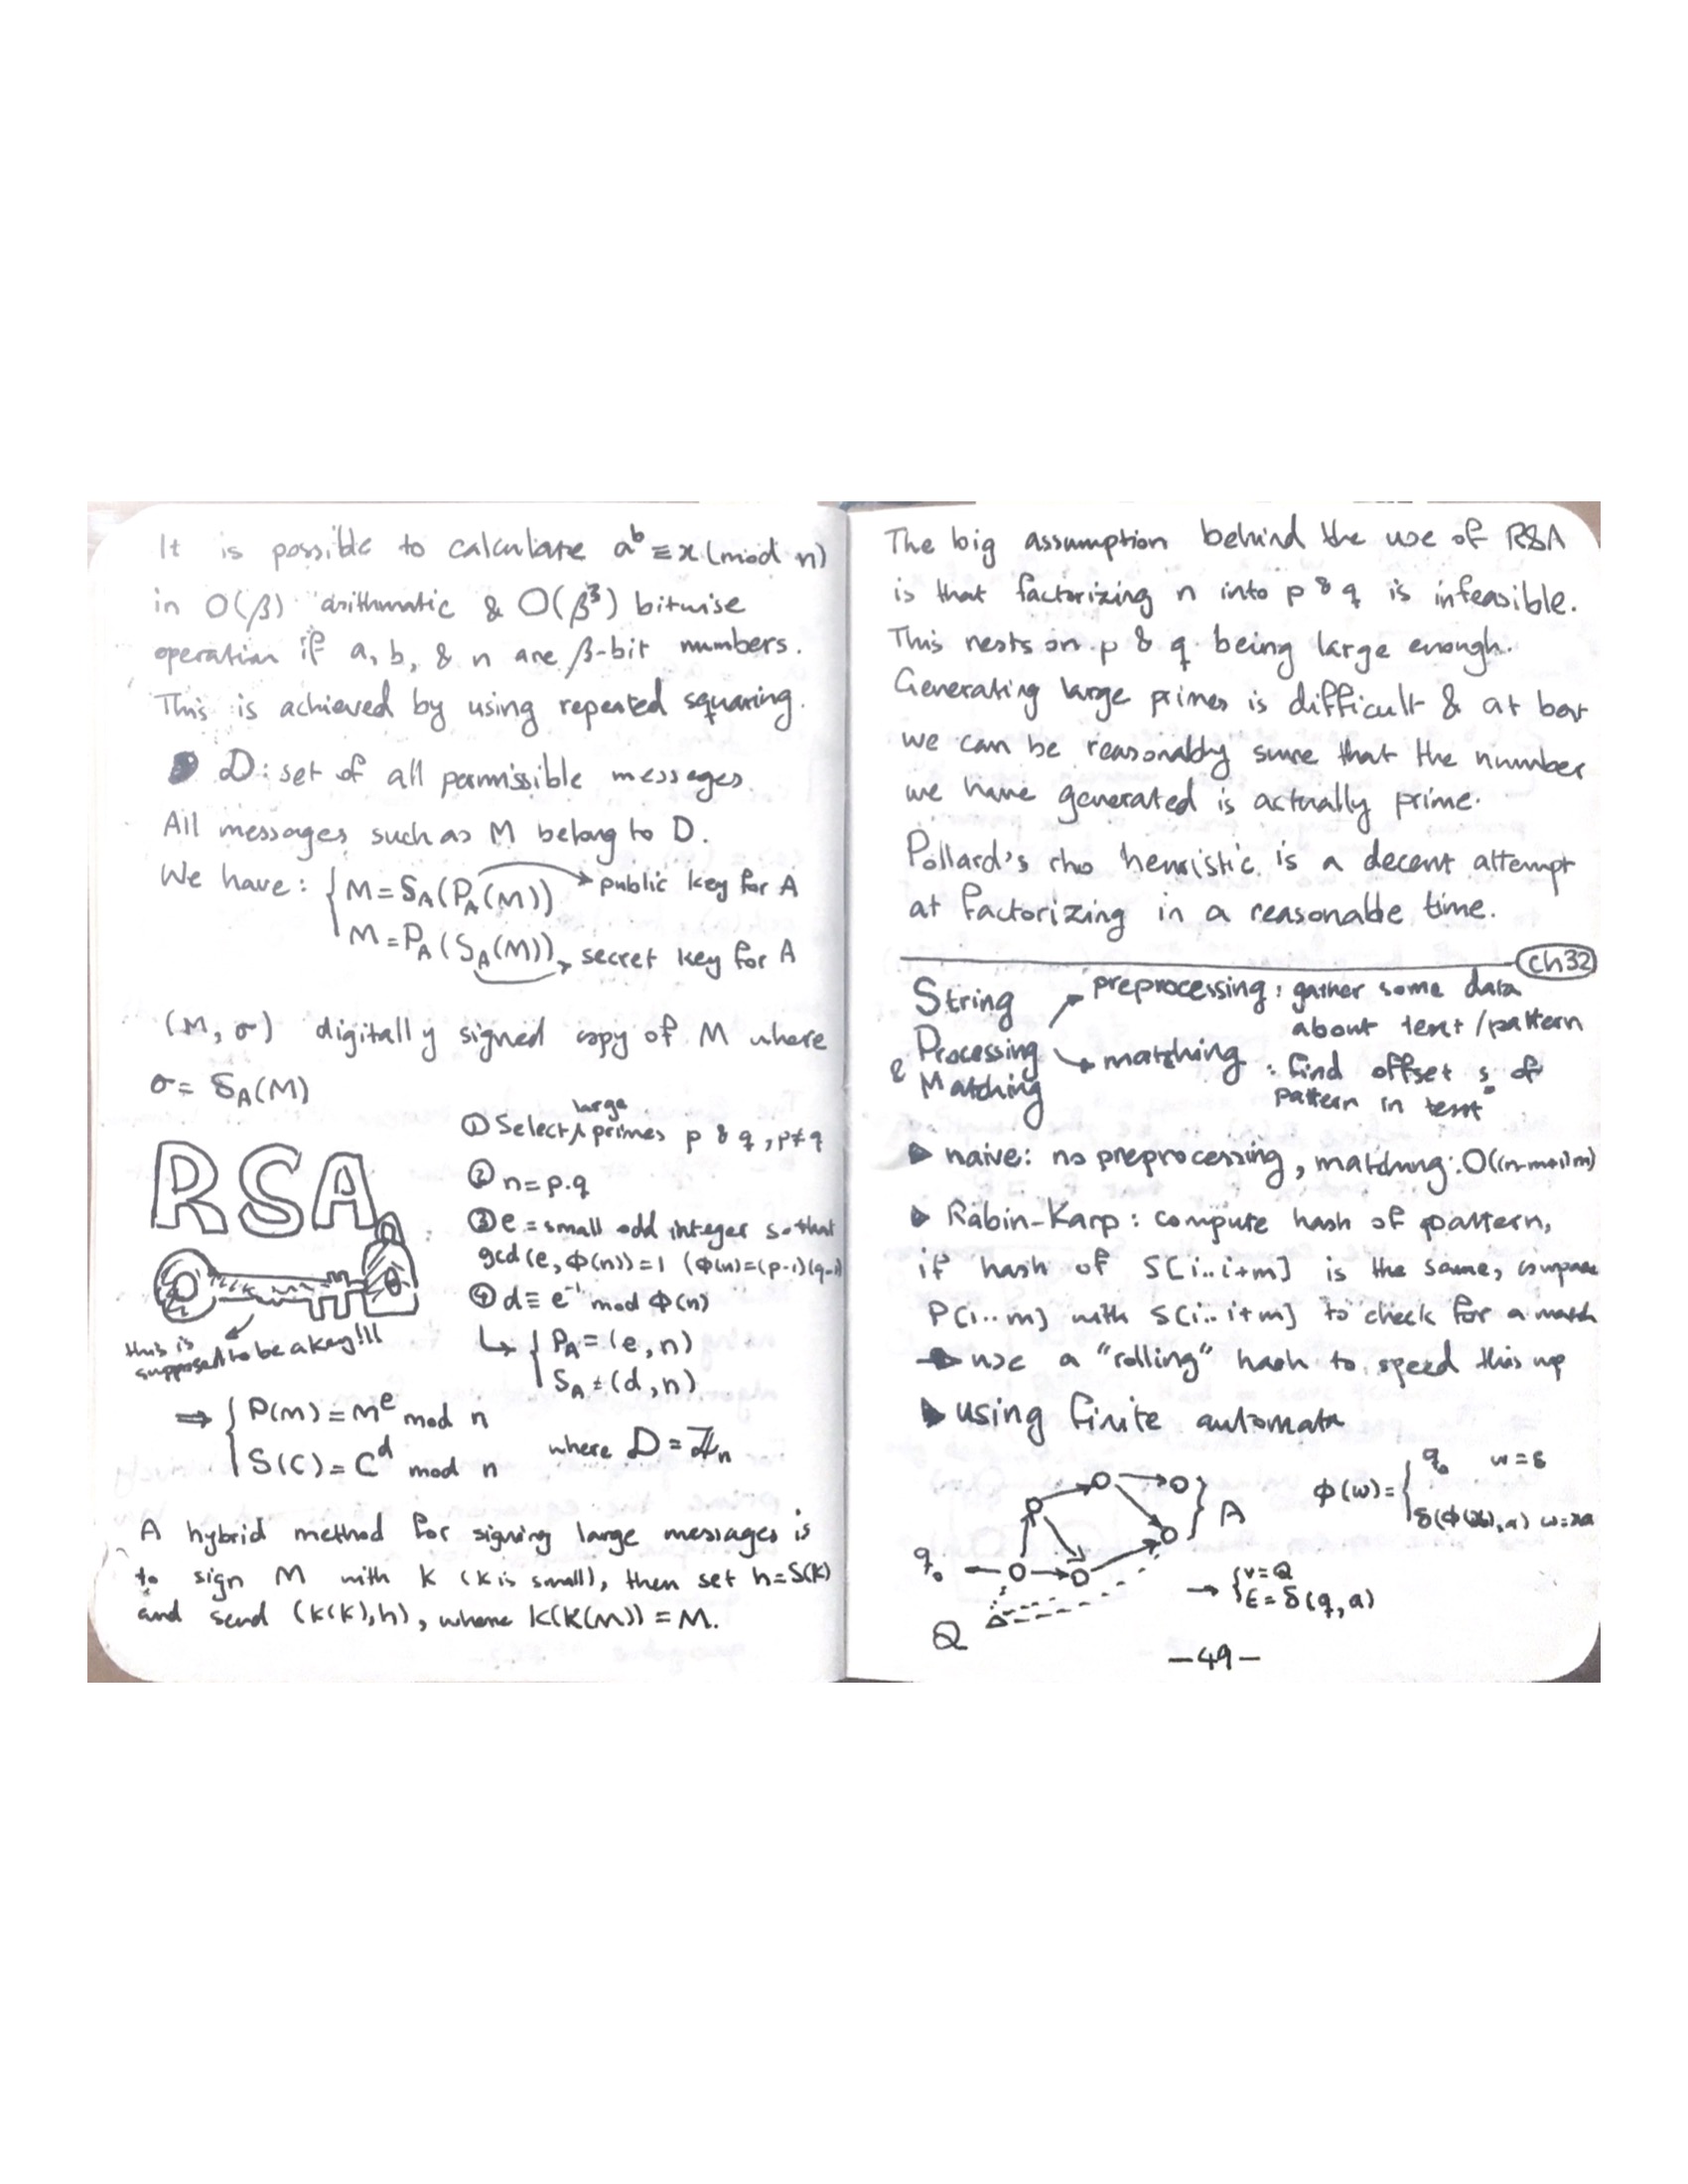 It is possible to calculate a^b ≡ x (mod n)
in O(β) arithmatic & O(β³) bitwise
operation if a, b, & n are β-bit numbers.
This is achieved by using repeated squaring.
D: set of all permissible messages
All messages such as M belong to D.
We have: { M = S_A(P_A(M)) → public key for A
M = P_A(S_A(M)) → secret key for A
(M, σ) digitally signed copy of M where
σ = S_A(M)
RSA:
this is
supposed to be a key!!!
① Select large primes p & q, p≠q
② n = p.q
③ e = small odd integer so that
gcd(e, Φ(n)) = 1 (Φ(n)=(p-1)(q-1))
④ d ≡ e^-1 mod Φ(n)
↳ { P_A = (e, n)
S_A = (d, n)
⇒ { P(M) = M^e mod n
S(C) = C^d mod n where D = ℤ_n
A hybrid method for signing large messages is
to sign M with K (K is small), then set h=S(K)
and send (K(K), h), where K(K(M)) = M.
The big assumption behind the use of RSA
is that factorizing n into p & q is infeasible.
This rests on p & q being large enough.
Generating large primes is difficult & at best
we can be reasonably sure that the number
we have generated is actually prime.
Pollard's rho heuristic is a decent attempt
at factorizing in a reasonable time.
Ch32
String
Processing
& Matching
→ preprocessing: gather some data
about text/pattern
→ matching: find offset s of
pattern in text
▶ naive: no preprocessing, matching: O((n-m+1)m)
▶ Rabin-Karp: compute hash of pattern,
if hash of S[i..i+m] is the same, compare
P[1..m] with S[i..i+m] to check for a match
→ use a "rolling" hash to speed this up
▶ using finite automata
q₀ Q A
Φ(w) = { q₀ w=ε
δ(Φ(x), a) w=xa
→ { V=Q
E = δ(q, a)
-49-